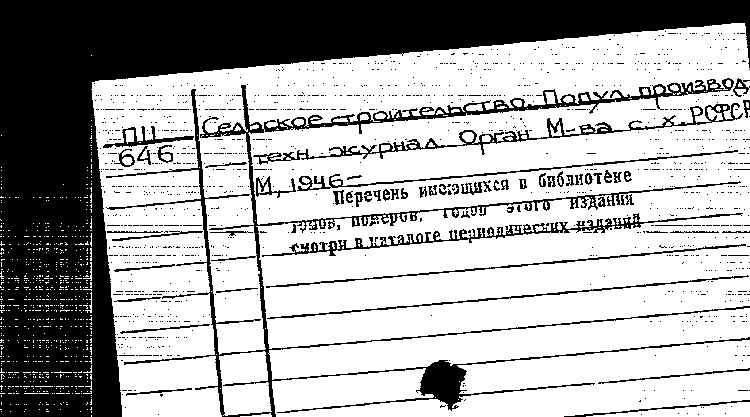 ПII
646
Сельское строительство. Попул. производ
техн. журнал. Орган М-ва с. х. РСФСР
М., 1946-
Перечень имеющихся в библиотеке
томов, номеров, годов этого издания
смотри в каталоге периодических изданий